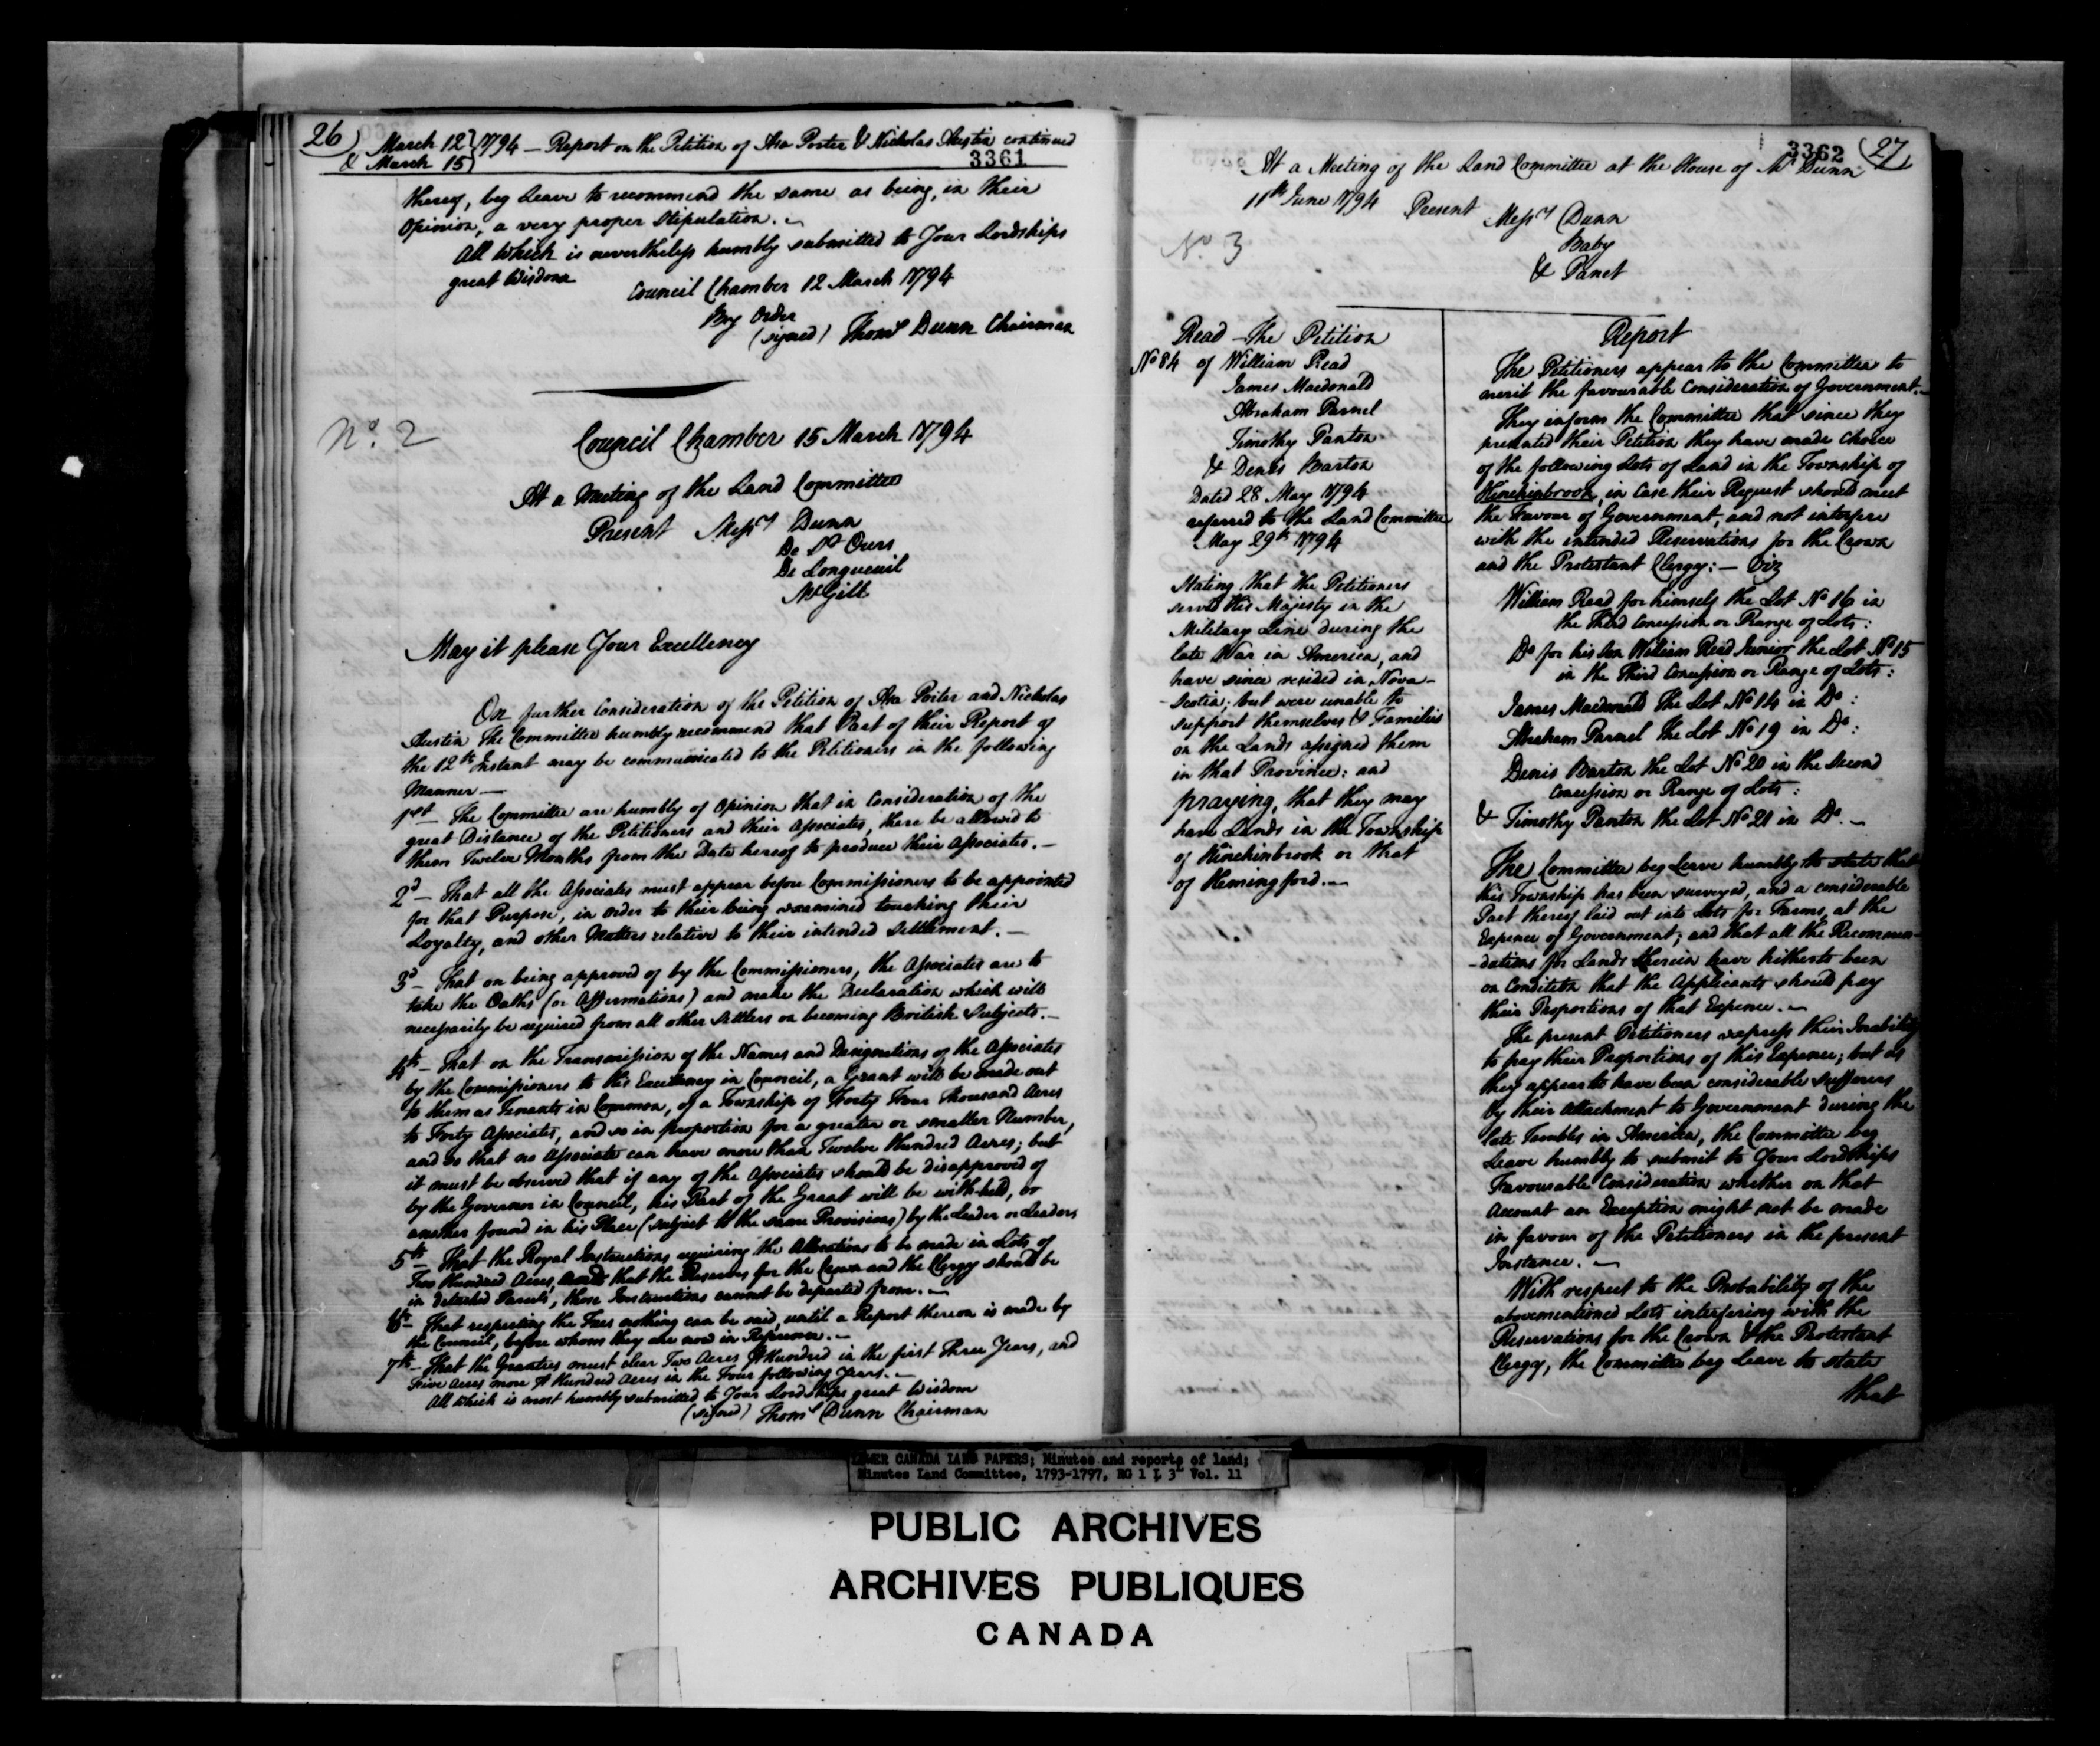 26
March 12 } 1794 — Report on the Petition of Asa Porter & Nicholas Austin continued
& March 15 }
3361
thereof, beg Leave to recommend the same as being, in their
Opinion, a very proper Stipulation. —
All which is nevertheless humbly submitted to Your Lordships
great Wisdom
Council Chamber 12 March 1794
By Order
(signed) Thoms Dunn Chairman
No. 2
Council Chamber 15 March 1794
At a Meeting of the Land Committee
Present Messrs Dunn
De St Ours
De Longueuil
McGill
May it please Your Excellency
On further Consideration of the Petition of Asa Porter and Nicholas
Austin The Committee humbly recommend that Part of their Report of
the 12th Instant may be communicated to the Petitioners in the following
Manner —
1st — The Committee are humbly of Opinion that in Consideration of the
great Distance of the Petitioners and their Associates, there be allowed to
them Twelve Months from the Date hereof to produce their Associates. —
2d — That all the Associates must appear before Commissioners to be appointed
for that Purpose, in order to their being examined touching their
Loyalty, and other Matters relative to their intended Settlement. —
3d — That on being approved of by the Commissioners, the Associates are to
take the Oaths (or Affirmations) and make the Declaration which will
necessarily be required from all other Settlers on becoming British Subjects. —
4th — That on the Transmission of the Names and Designations of the Associates
by the Commissioners to His Excellency in Council, a Grant will be made out
to them as Tenants in Common, of a Township of Forty Four Thousand Acres
to Forty Associates, and so in proportion for a greater or smaller Number,
and so that no Associate can have more than Twelve Hundred Acres; but
it must be observed that if any of the Associates should be disapproved of
by the Governor in Council, his Part of the Grant will be with-held, or
another found in his Place (subject to the same Provisions) by the Leader or Leaders
5th — That the Royal Instructions requiring the Allocations to be made in Lots of
Two Hundred Acres, that the Reserves for the Crown and the Clergy should be
in detached Parcels, those Instructions cannot be departed from. —
6th — That respecting the Fees nothing can be said, until a Report thereon is made by
the Council, before whom they are now in Reference. —
7th — That the Grantees must clear Two Acres Pr Hundred in the first Three Years, and
Five Acres more Pr Hundred Acres in the Four following Years. —
All which is most humbly submitted to Your Lordships great Wisdom
(signed) Thoms Dunn Chairman
3362
27
At a Meeting of the Land Committee at the House of Mr Dunn
11th June 1794
Present Messrs Dunn
Baby
& Panet
No. 3
Read — The Petition
No 84 of William Read
James Macdonald
Abraham Parnel
Timothy Panton
& Denis Barton
Dated 28 May 1794
referred to the Land Committee
May 29th 1794
Stating that the Petitioners
served His Majesty in the
Military Line during the
late War in America, and
have since resided in Nova-
Scotia; but were unable to
support themselves & Families
on the Lands assigned them
in that Province: and
praying, that they may
have Lands in the Township
of Hinchinbrook or that
of Hemingford. —
Report
The Petitioners appear to the Committee to
merit the favourable Consideration of Government. —
They inform the Committee that since they
presented their Petition they have made Choice
of the following Lots of Land in the Township of
Hinchinbrook, in Case their Request should meet
the Favour of Government, and not interfere
with the intended Reservations for the Crown
and the Protestant Clergy: — Viz
William Read for himself the Lot No 16 in
the Third Concession or Range of Lots:
Do for his Son William Read Junior the Lot No 15
in the Third Concession or Range of Lots:
James Macdonald The Lot No 14 in Do:
Abraham Parnel The Lot No 19 in Do:
Denis Barton the Lot No 20 in the Second
Concession or Range of Lots:
& Timothy Panton the Lot No 21 in Do. —
The Committee beg Leave humbly to state that
this Township has been surveyed, and a considerable
Part thereof laid out into Lots for Farms, at the
Expence of Government; and that all the Recommen-
-dations for Lands therein have hitherto been
on Condition that the Applicants should pay
their Proportions of that Expence. —
The present Petitioners express their Inability
to pay their Proportions of this Expence; but as
they appear to have been considerable Sufferers
by their Attachment to Government during the
late Troubles in America, the Committee beg
Leave humbly to submit to Your Lordships
Favourable Consideration whether on that
Account an Exception might not be made
in favour of the Petitioners in the present
Instance. —
With respect to the Probability of the
abovementioned Lots interfering with the
Reservations for the Crown & the Protestant
Clergy, the Committee beg Leave to state
that
LOWER CANADA LAND PAPERS; Minutes and reports of land;
Minutes Land Committee, 1793-1797, RG 1 L 3L Vol. 11
PUBLIC ARCHIVES
ARCHIVES PUBLIQUES
CANADA